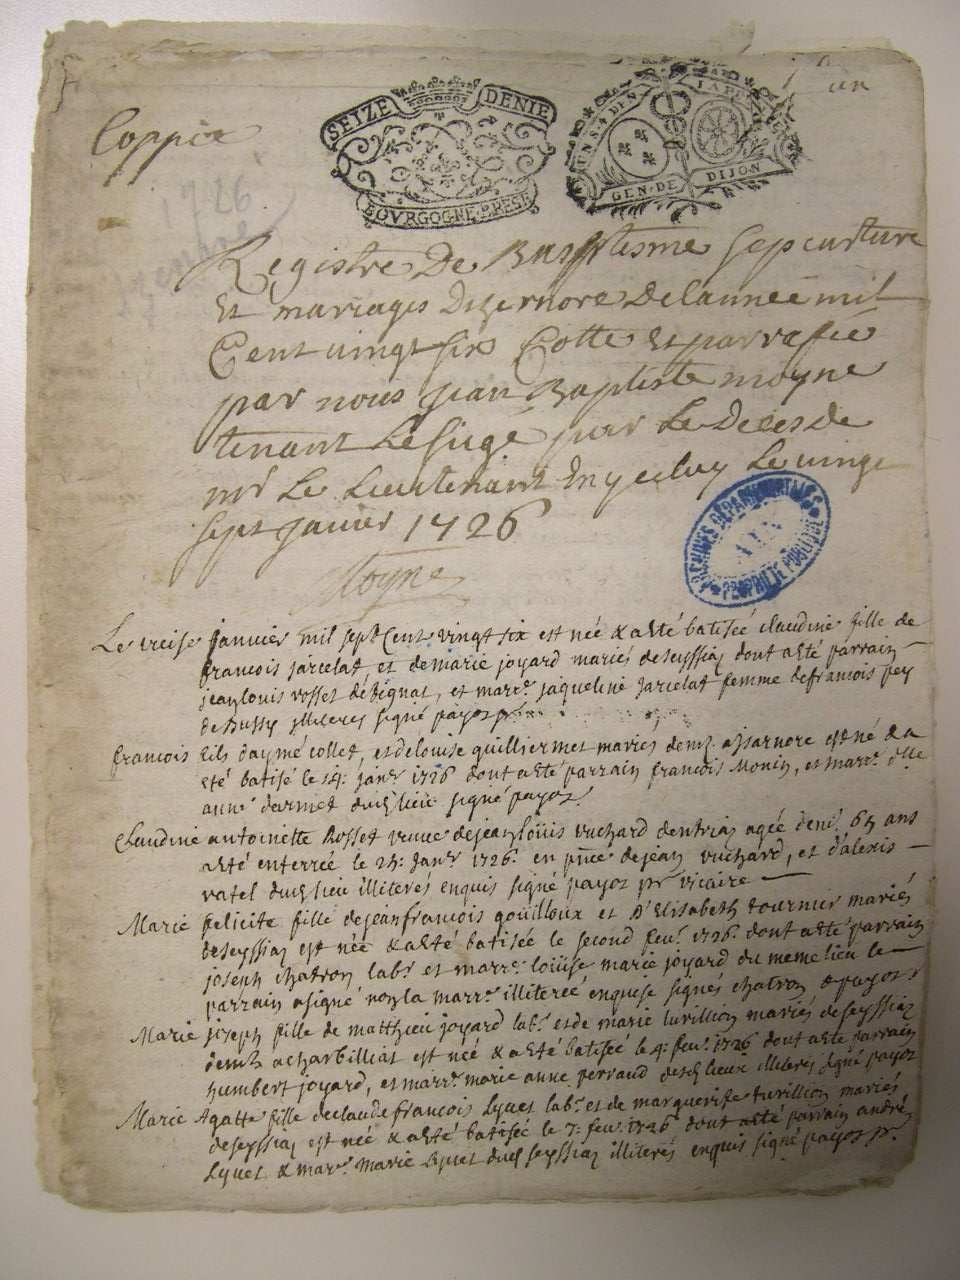 un
Coppie
SEIZE DENIE
BOVRGOGNE BRESE
GEN. DE DIJON
1726
Registre De Baptisme Sepeulture
Et mariages Dizernore de lannee mil
Cent vingt six Cotte Et parrafée
par nous Jean Baptiste moyne
tenant Le siege par Le Deces de
mr Le Lieutenant En yceluy Le vingt
sept Janvier 1726
Moyne
ARCHIVES DÉPARTEMENTALES
AIN
PROPRIÉTÉ PUBLIQUE
Le treise janvier mil sept Cent vingt six est née & a esté batisée claudine fille de
francois jarcelat, et de marie joyard mariés de seyssia dont a esté parrain
jean louis rosset de et marr. jaqueline jarcelat femme de francois
de Bussy illiteres signé payoz pr
francois fils d'aymé collet, et de louise quilliermet mariés dem. a jsarnore est né & a
eté batisé le 14. janr. 1726 dont a esté parrain francois Monin, et marr. dlle
anne darmet dud lieu signé payoz
Claudine antoinette Rosset veuve de jean louis vuchard d'entria agée d'env. 65 ans
a esté enterrée le 24. Janr. 1726. en pnce de jean vuchard, et d'alexis
vatel dud lieu illiterés enquis signé payoz pr vicaire
Marie felicite fille de jean francois gouilloux et d'Elisabeth tournier mariés
de seyssia est née & a esté batisée le second feu. 1726. dont a esté parrain
joseph chatron labr. et marr. louise marie joyard du meme lieu le
parrain a signé non la marr. illiterée enquise signés chatron & payoz
Marie joseph fille de matthieu joyard labr. et de marie turillion mariés de seyssia
dem. a charbilliat est née & a esté batisée le 4. feu. 1726 dont a esté parrain
humbert joyard, et marr. marie anne perraud desd lieux illiterés signé payoz
Marie Agatte fille de claude francois Lyuet labr. et de marguerite turillion mariés
de seyssia est née & a esté batisée le 7. feu. 1726 dont a esté parrain andré
Lyuet & marr. Marie Lyuet dud seyssia illiterés enquis signé payoz pr.